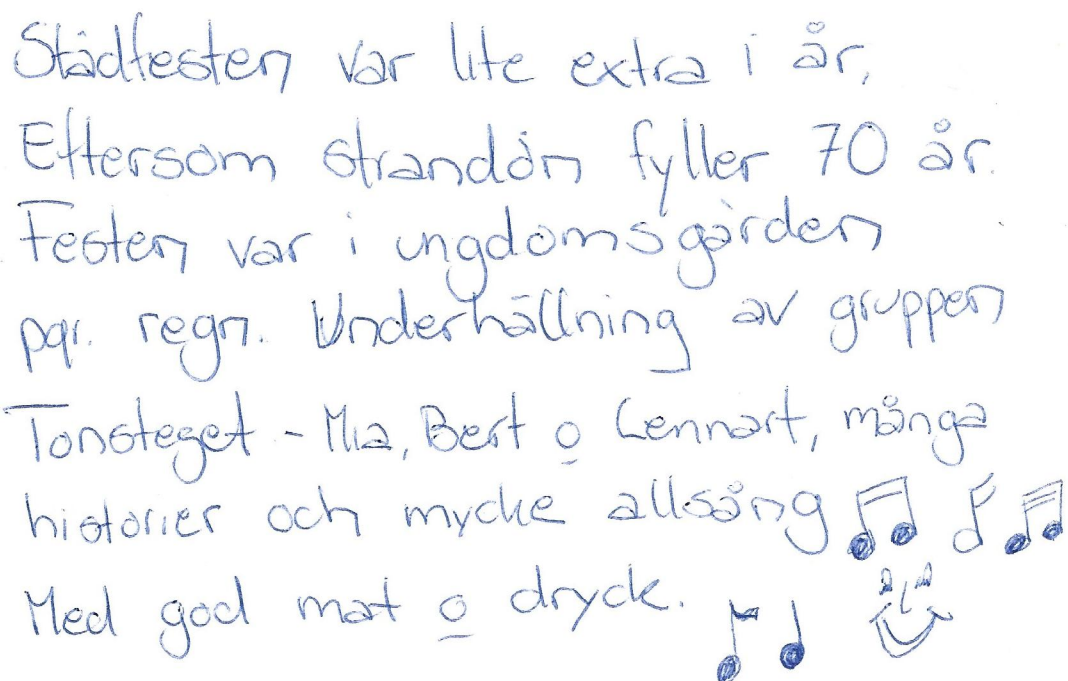 Städfesten var lite extra i år,
Eftersom strandön fyller 70 år.
Festen var i ungdomsgården
pgr. regn. Underhållning av gruppen
Tonsteget - Mia, Bert o Lennart, många
historier och mycke allsång
Med god mat o dryck.